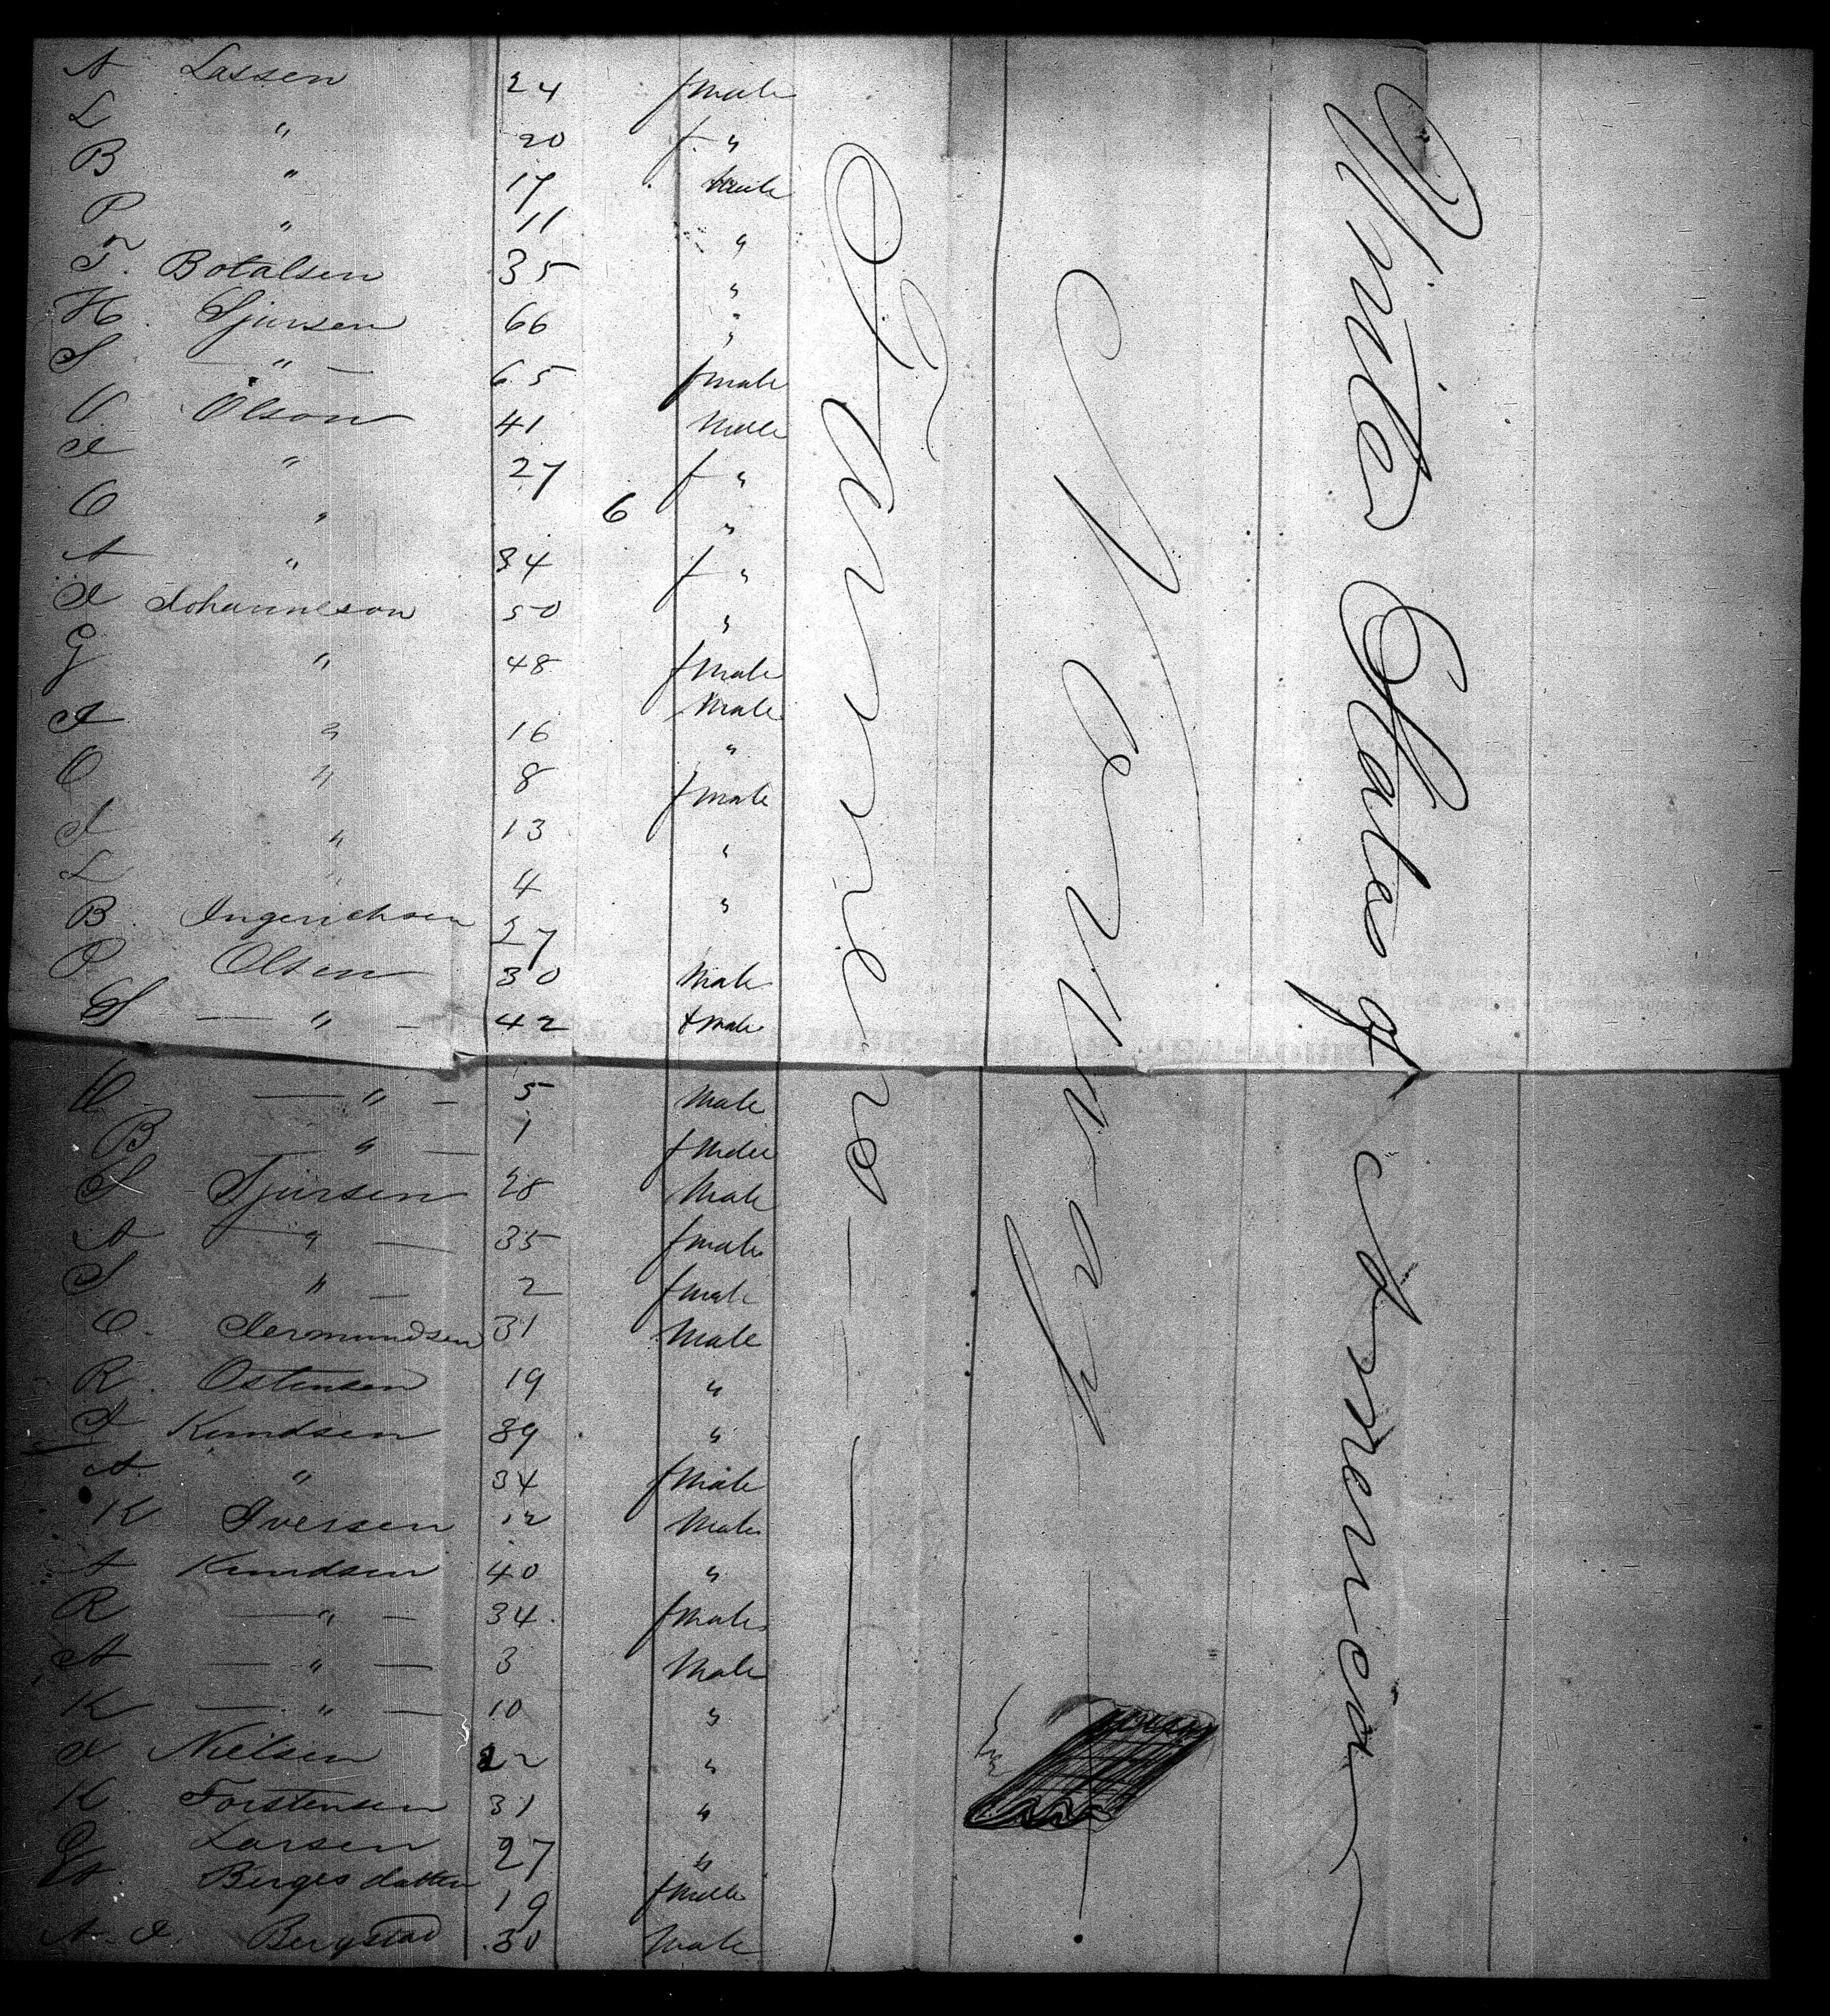 A Lassen 24 fmale
L " 20 f "
B " 17 male
P " 11 "
T. Botalsen 35 "
H. Sjursen 66 "
S — " — 65 fmale
O Olson 41 Male
I " 27 f "
O " 6 "
A " 34 f "
I Johanneson 50 "
G " 48 fmale
A " 16 Male
O " 8 "
I " 13 fmale
L " 4 "
B. Ingerichsen 27 "
O Olsen 30 Male
S — " — 42 fmale
O — " — 5 Male
B — " — 1 fmale
S Sjursen 28 Male
A — " — 35 fmale
S " — 2 fmale
O. 31 Male
R. Ostensen 19 "
I Knudsen 39 "
A " 34 fmale
K Iversen 12 Male
A Knudsen 40 "
R — " — 34 fmale
A — " — 3 Male
K — " — 10 "
I Nielsen 22 "
K Torstensen 31 "
Larsen 27 "
Birgesdatter 19 fmale
A. I. Bergstad 30 Male
Farmers
Norway
United States of America